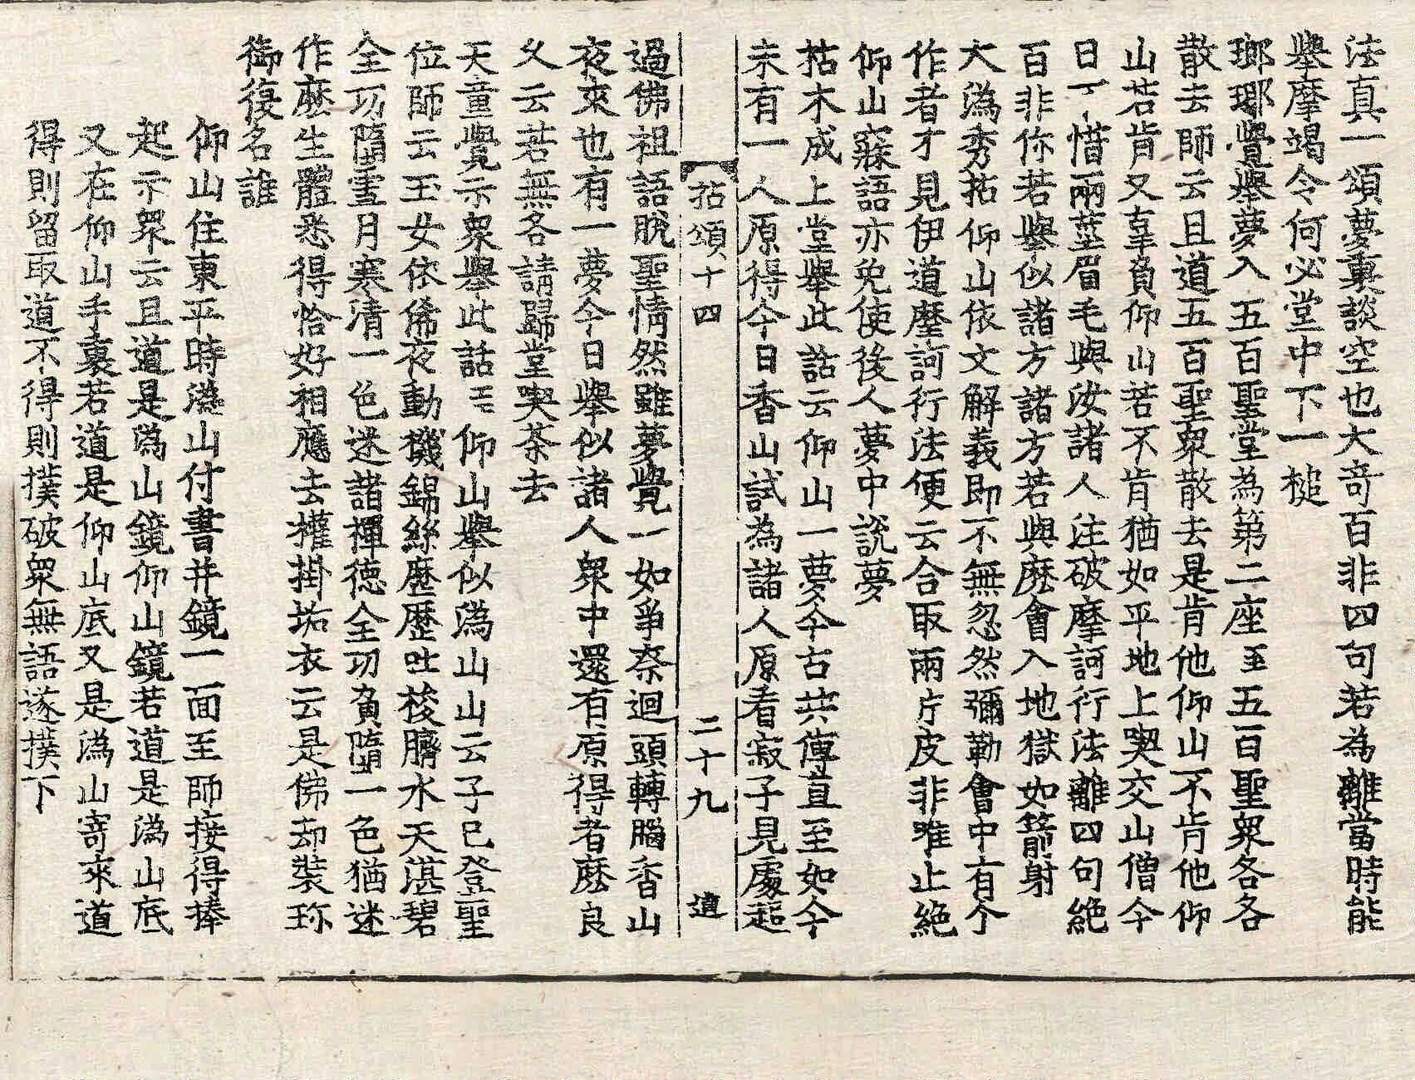 法真一頌夢裏談空也大奇百非四句若為離當時能
舉摩竭令何必堂中下一槌
瑯琊覺舉夢入五百聖堂為第二座至五百聖衆各各
散去師云且道五百聖衆散去是肯他仰山不肯他仰
山若肯又辜負仰山若不肯猶如平地上喫交山僧今
日不惜兩莖眉毛與汝諸人注破摩訶衍法離四句絶
百非你若舉似諸方諸方若與麽會入地獄如箭射
大潙秀拈仰山依文解義即不無忽然彌勒會中有个
作者才見伊道摩訶衍法便云合取兩片皮非唯止絶
仰山寐語亦免使後人夢中說夢
枯木成上堂舉此話云仰山一夢今古共傳直至如今
未有一人原得今日香山試為諸人原看寂子見處超
拈頌十四 二十九 遺
過佛祖語脫聖情然雖夢覺一如爭奈迴頭轉腦香山
夜來也有一夢今日舉似諸人衆中還有原得者麽良
乆云若無各請歸堂喫茶去
天童覺示衆舉此話至仰山舉似潙山山云子已登聖
位師云玉女依俙夜動機錦絲歷歷吐梭臍水天湛碧
全功隨雪月寒清一色迷諸禪德全功負墮一色猶迷
作麽生體悉得恰好相應去權掛垢衣云是佛却裝珎
御復名誰
仰山住東平時潙山付書并鏡一面至師接得捧
起示衆云且道是潙山鏡仰山鏡若道是潙山底
又在仰山手裏若道是仰山底又是潙山寄來道
得則留取道不得則撲破衆無語遂撲下